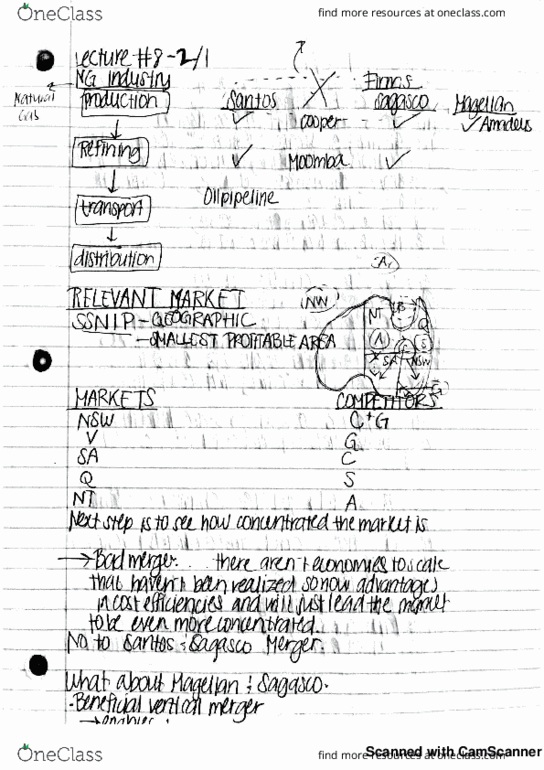 OneClass
find more resources at oneclass.com
Lecture #8-2/1
NG industry
Natural Gas
Firms
production
Santos
Sagasco
Magellan
Cooper
Amadeus
refining
Moomba
transport
Oilpipeline
distribution
A
RELEVANT MARKET
NW
SSNIP - GEOGRAPHIC
- SMALLEST PROFITABLE AREA
NT
B
Q
A
C
S
SA
NSW
G
MARKETS
COMPETITORS
NSW
C+G
V
G
SA
C
Q
S
NT
A
Next step is to see how concentrated the market is
→ Bad merger... there aren't economies to scale
that haven't been realized so now advantages
in cost efficiencies and will just lead the market
to be even more concentrated.
No to Santos & Sagasco Merger.
What about Magellan & Sagasco.
- Beneficial vertical merger
→ enables
Scanned with CamScanner
OneClass
find more resources at oneclass.com